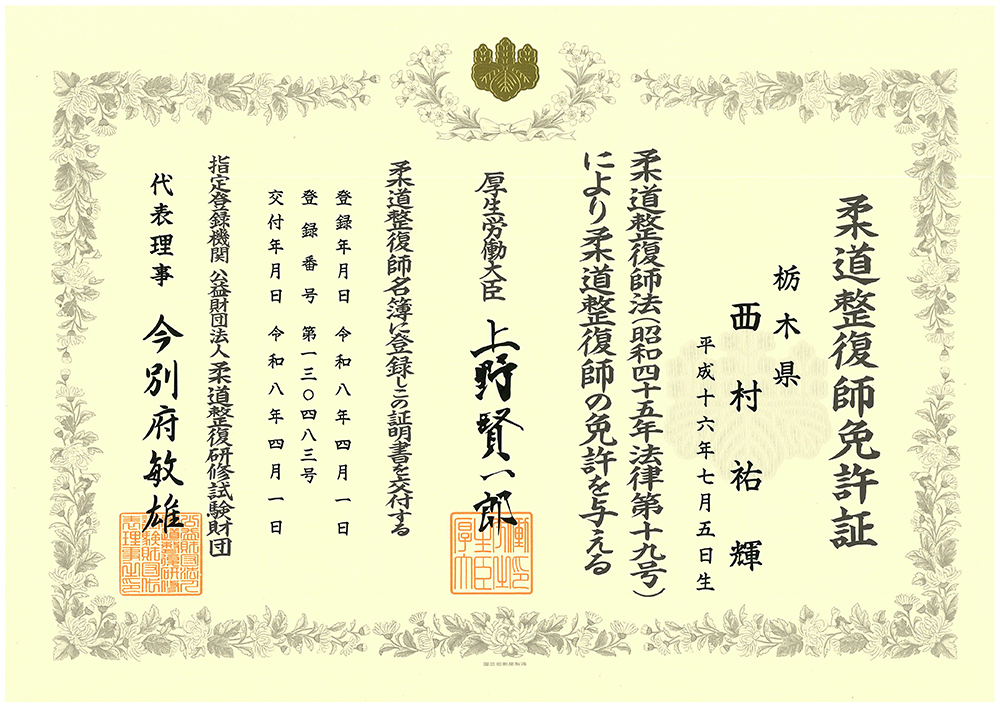 柔道整復師免許証
栃木県
西村祐輝
平成十六年七月五日生
柔道整復師法(昭和四十五年法律第十九号)
により柔道整復師の免許を与える
厚生労働大臣 上野賢一郎
柔道整復師名簿に登録しこの証明書を交付する
登録年月日 令和八年四月一日
登録番号 第一三〇四八三号
交付年月日 令和八年四月一日
指定登録機関 公益財団法人 柔道整復研修試験財団
代表理事 今別府敏雄